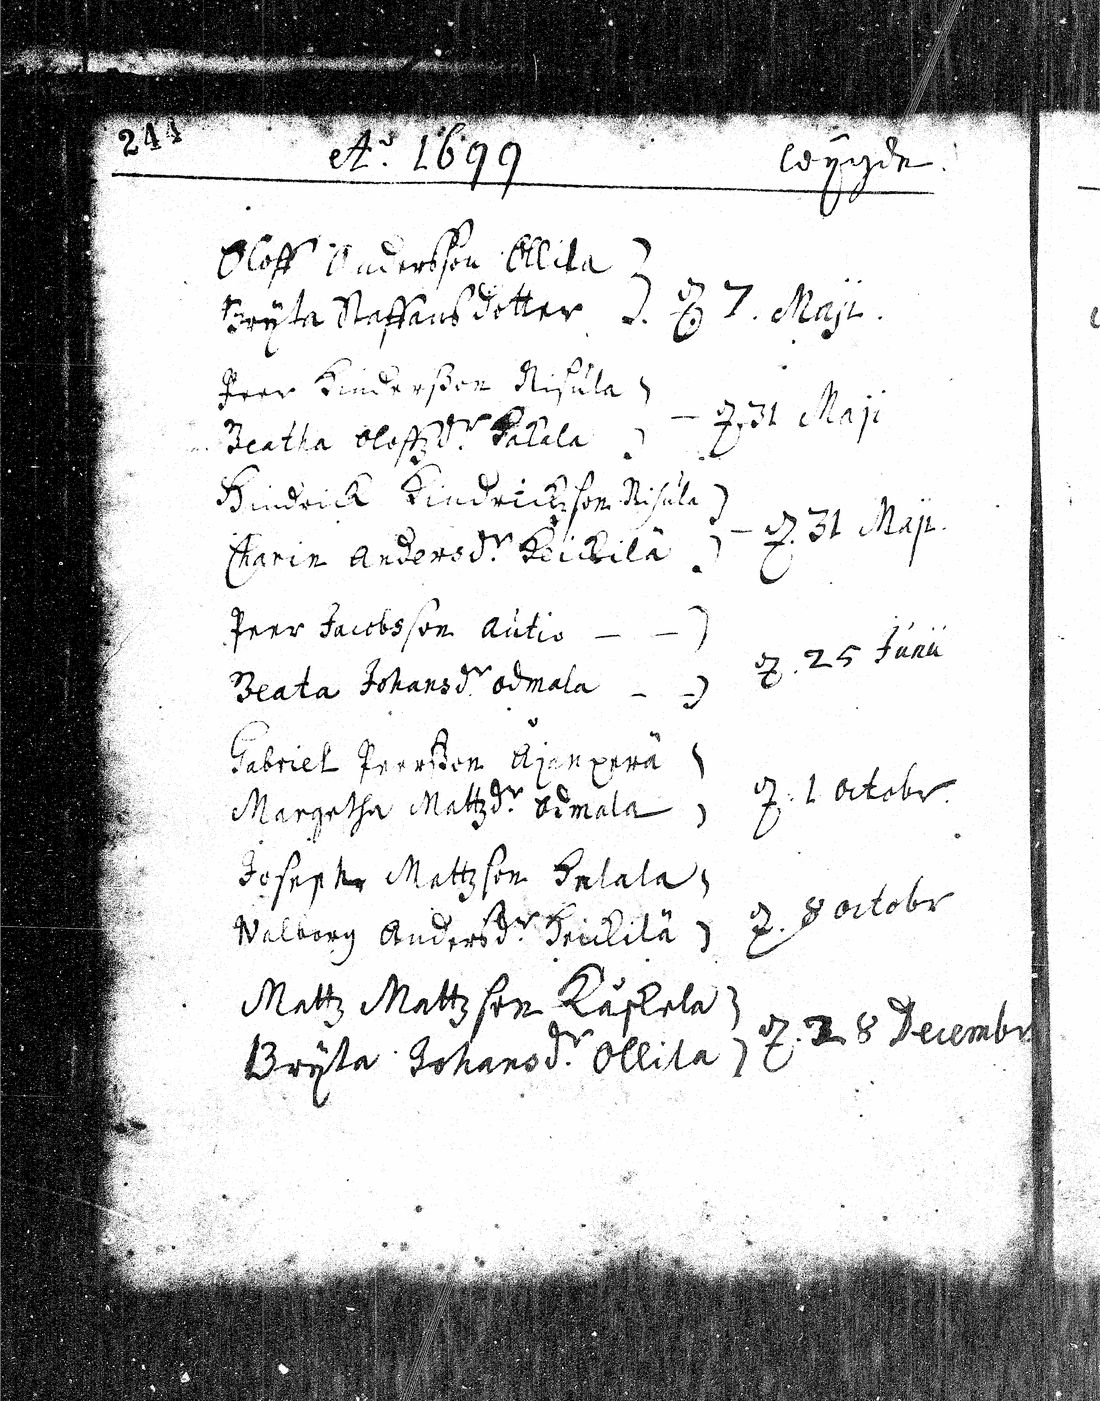 244
Ao. 1699 Wÿgde.
Oloff Andersson Ollila
Brÿta Staffans dotter d. 7. Maji.
Peer Hinderßon Nisula
Beatha Oloffzdr. Kakala d. 31 Maji
Hindrick Hindricksson Nisula
Charin Andersdr. Heickilä d. 31 Maji.
Peer Jacobsson Autio
Beata Johansdr. Odmala d. 25 Junii
Gabriel Peersson Äjänperä
Margetha Mattzdr. Odmala d. 1 Octobr.
Joseph Mattzson Kalala
Walborg Andersdr. Heickilä d. 8 Octobr
Mattz Mattzson Kåskela
Brÿta Johansdr. Ollila d. 28 Decembr